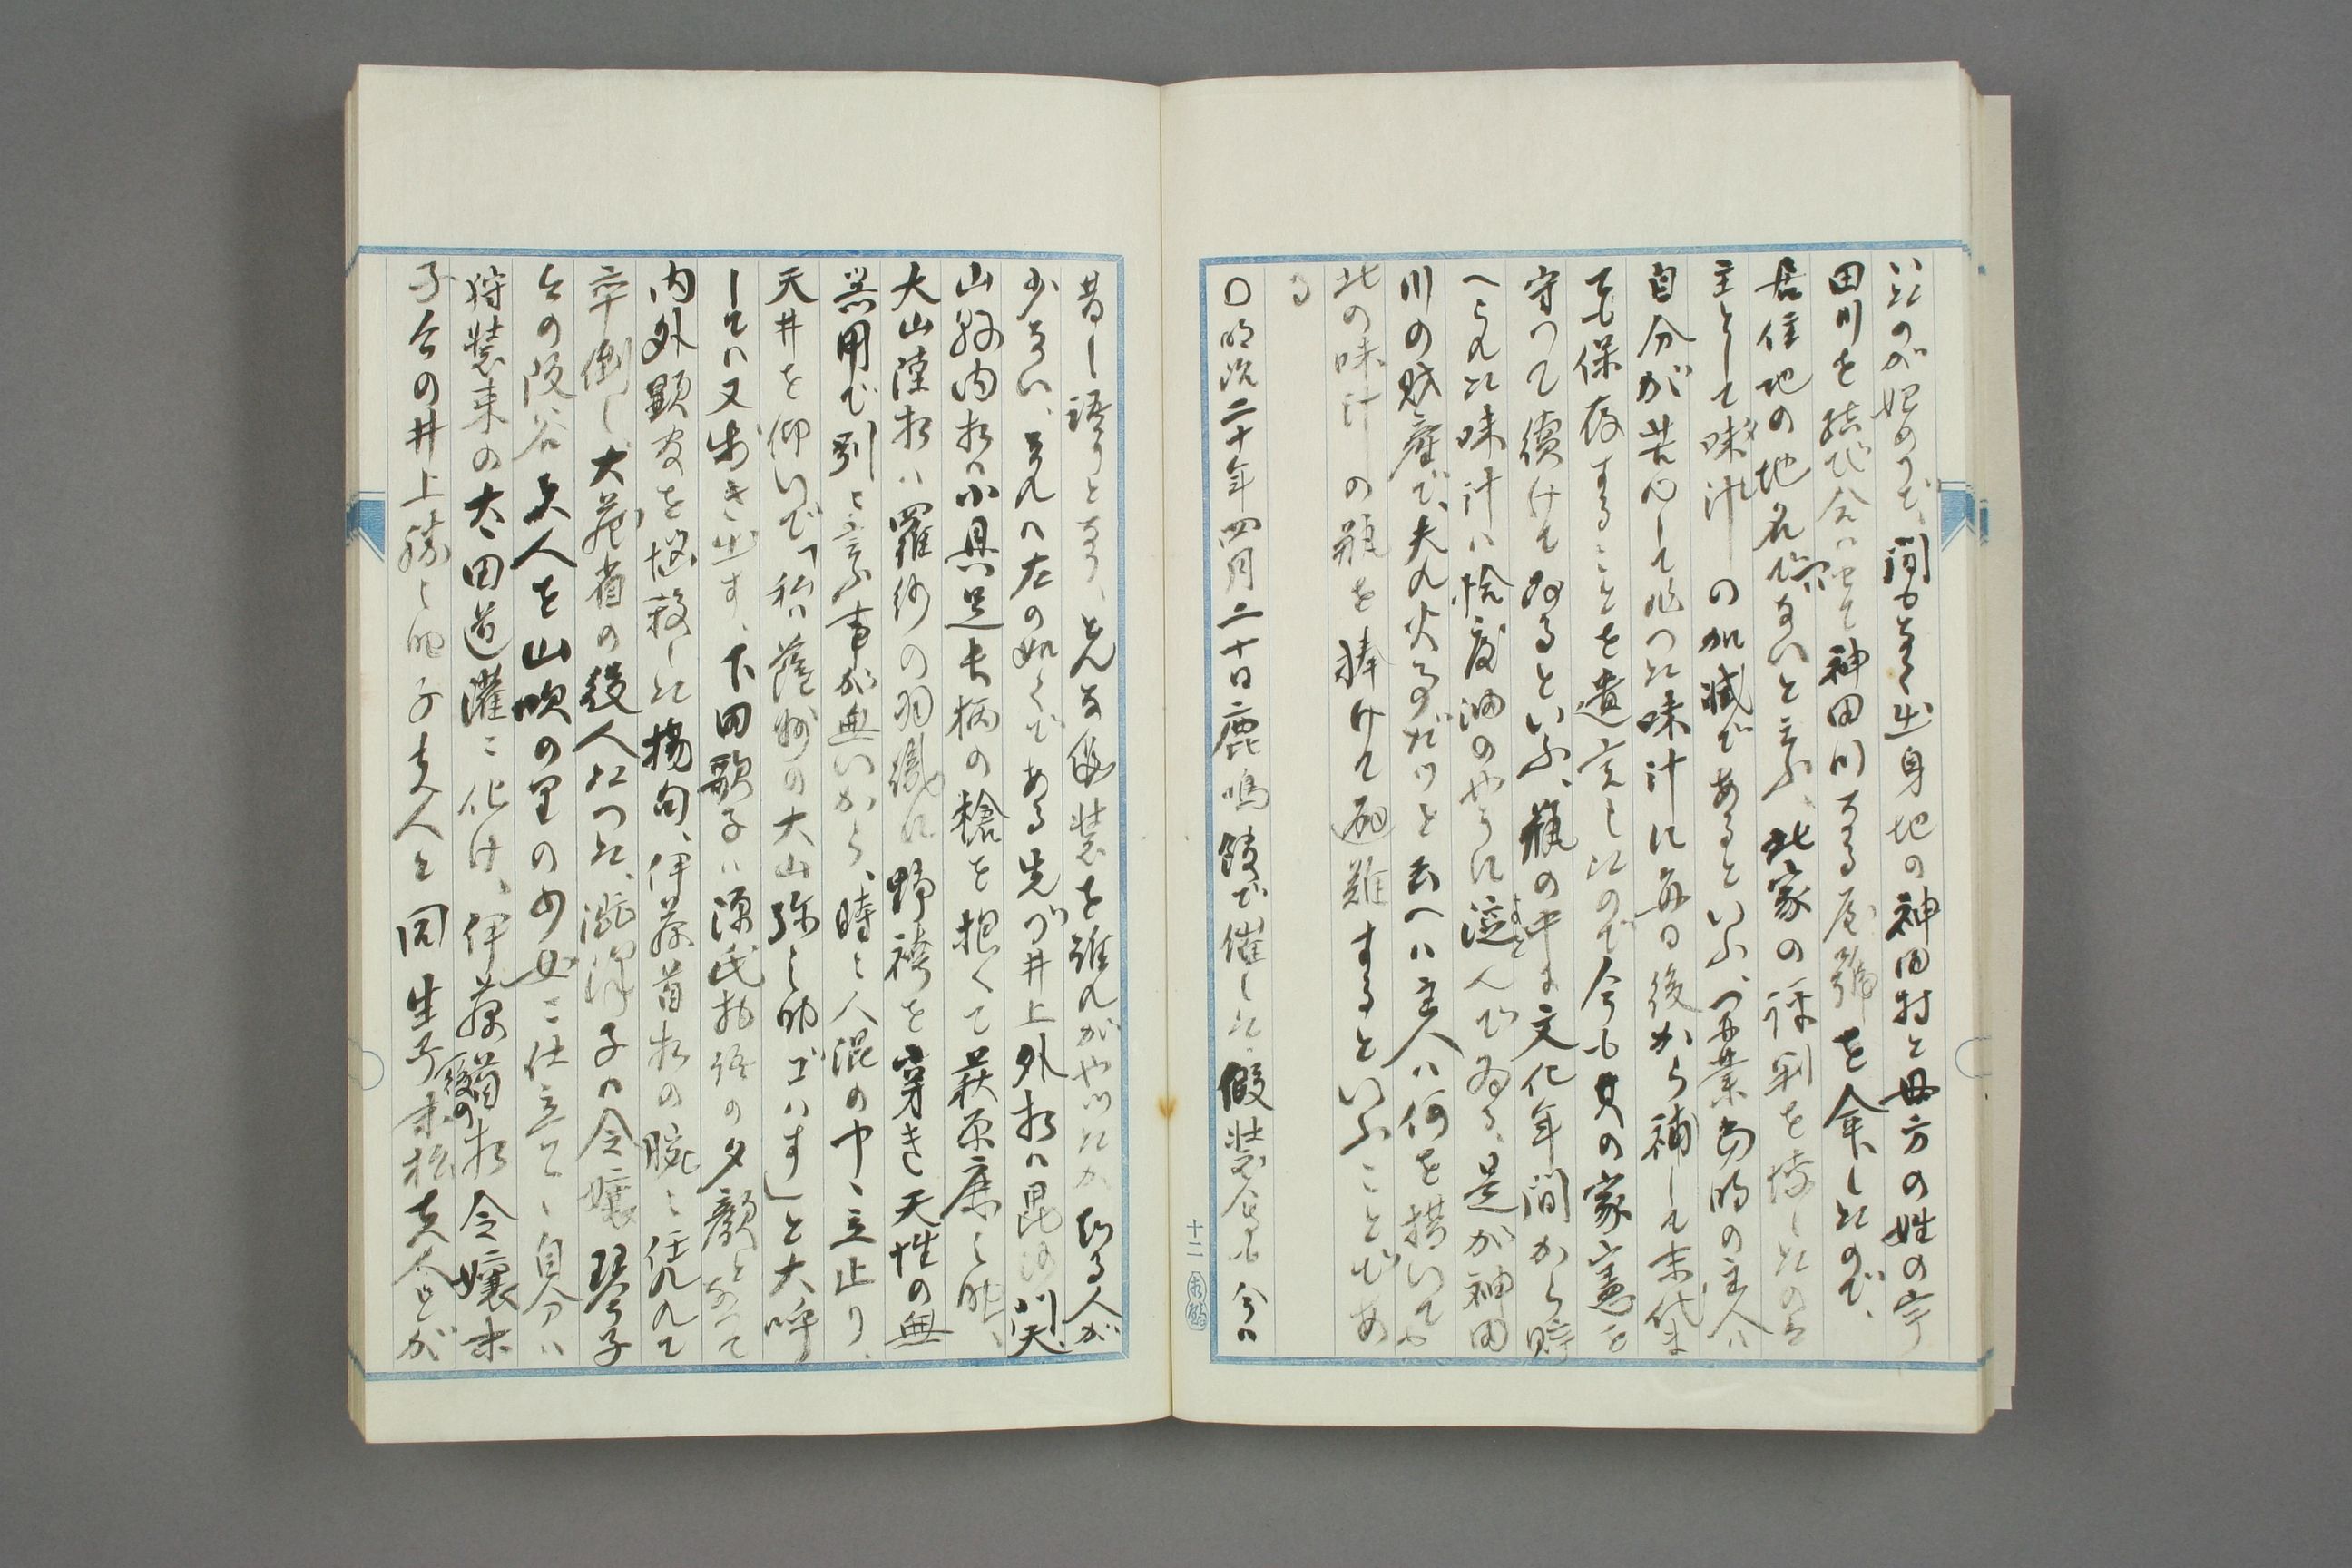 いたのが始めで、間もなく出身地の神田村と母方の姓の宇
田川を結び合はせて神田川なる屋號を命じたので、
居住地の地名でハないと云ふ、此家の評判を博したのは
主として味汁の加減であるといふ、開業当時の主人ハ
自分が苦心して作つた味汁に毎日後から補して末代ま
でも保存することを遺言したので今も其の家憲を
守つて續けてゐるといふ、瓶の中に文化年間から貯
へられた味汁ハ恰度油のやうに淀んでゐる、是が神田
川の財産で、夫れ火事だツと云へハ主人ハ何を措いても
此の味汁の瓶を捧けて避難するといふことであ
る
〇明治二十年四月二十日鹿鳴館で催した假装会も今ハ
十二
昔し語りとなり、どんな仮装を誰れがやつたか知る人が
少ない、それハ左の如くである先づ井上外相ハ毘沙門天、
山縣内相ハ小具足長柄の槍を抱へて萩原鹿之助、
大山陸相ハ羅紗の羽織に野袴を穿き天性の無
器用で別に言ふ事が無いから、時々人混の中に立止り、
天井を仰いで「私ハ薩州の大山弥之助ゴハす」と大呼
してハ又歩き出す、下田歌子ハ源氏物語の夕顔となつて
内外顕官を悩殺した揚句、伊藤首相の腕に凭れて
卒倒し大蔵省の役人だつた、澁澤子の令嬢琴子
今の阪谷夫人を山吹の里の少女に仕立てゝ自分ハ
狩装束の太田道灌に化け、伊藤首相令嬢末
後の
子今の井上勝之助子夫人と同生子末松夫人とが